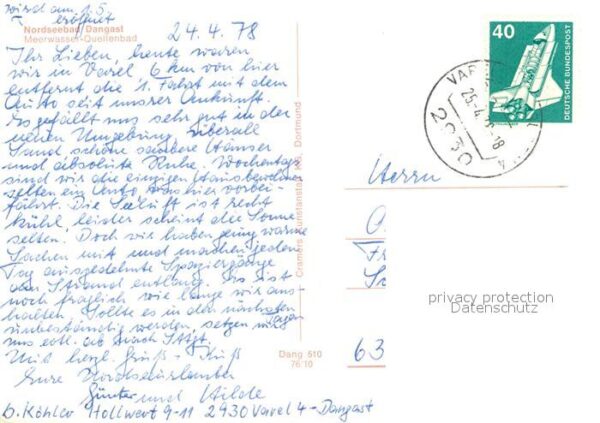 wird am 1.5.
eröffnet
24.4.78
Nordseebad Dangast
Meerwasser-Quellenbad
Ihr Lieben, heute waren
wir in Varel, 6 km von hier
entfernt die 1. Fahrt mit dem
Auto seit unserer Ankunft.
Es gefällt uns sehr gut in der
neuen Umgebung. Überall
Sand, schöne saubere Häuser
und absolute Ruhe. Wochentags
sind wir die einzigen Hausbewohner
selten ein Auto was hier vorbei-
fährt. Die Seeluft ist recht
kühl, leider scheint die Sonne
selten. Doch wir haben genug warme
Sachen mit und machen jeden
Tag ausgedehnte Spaziergänge
am Strand entlang. Es ist
noch fraglich wie lange wir aus-
halten. Sollte es in den nächsten
Tagen
unbeständig werden, setzen wir
uns evtl. ab nach Stgt.
Mit herzl. Gruß + Kuß
Eure Nordseeurlauber
Günter und Hilde
b. Köhler Hollwert 9-11 2930 Varel 4-Dangast
Cramers Kunstanstalt KG, Dortmund
Dang 510
76:10
40
DEUTSCHE BUNDESPOST
VAR
25.-4.
-18
4
2930
Herrn
63
privacy protection
Datenschutz